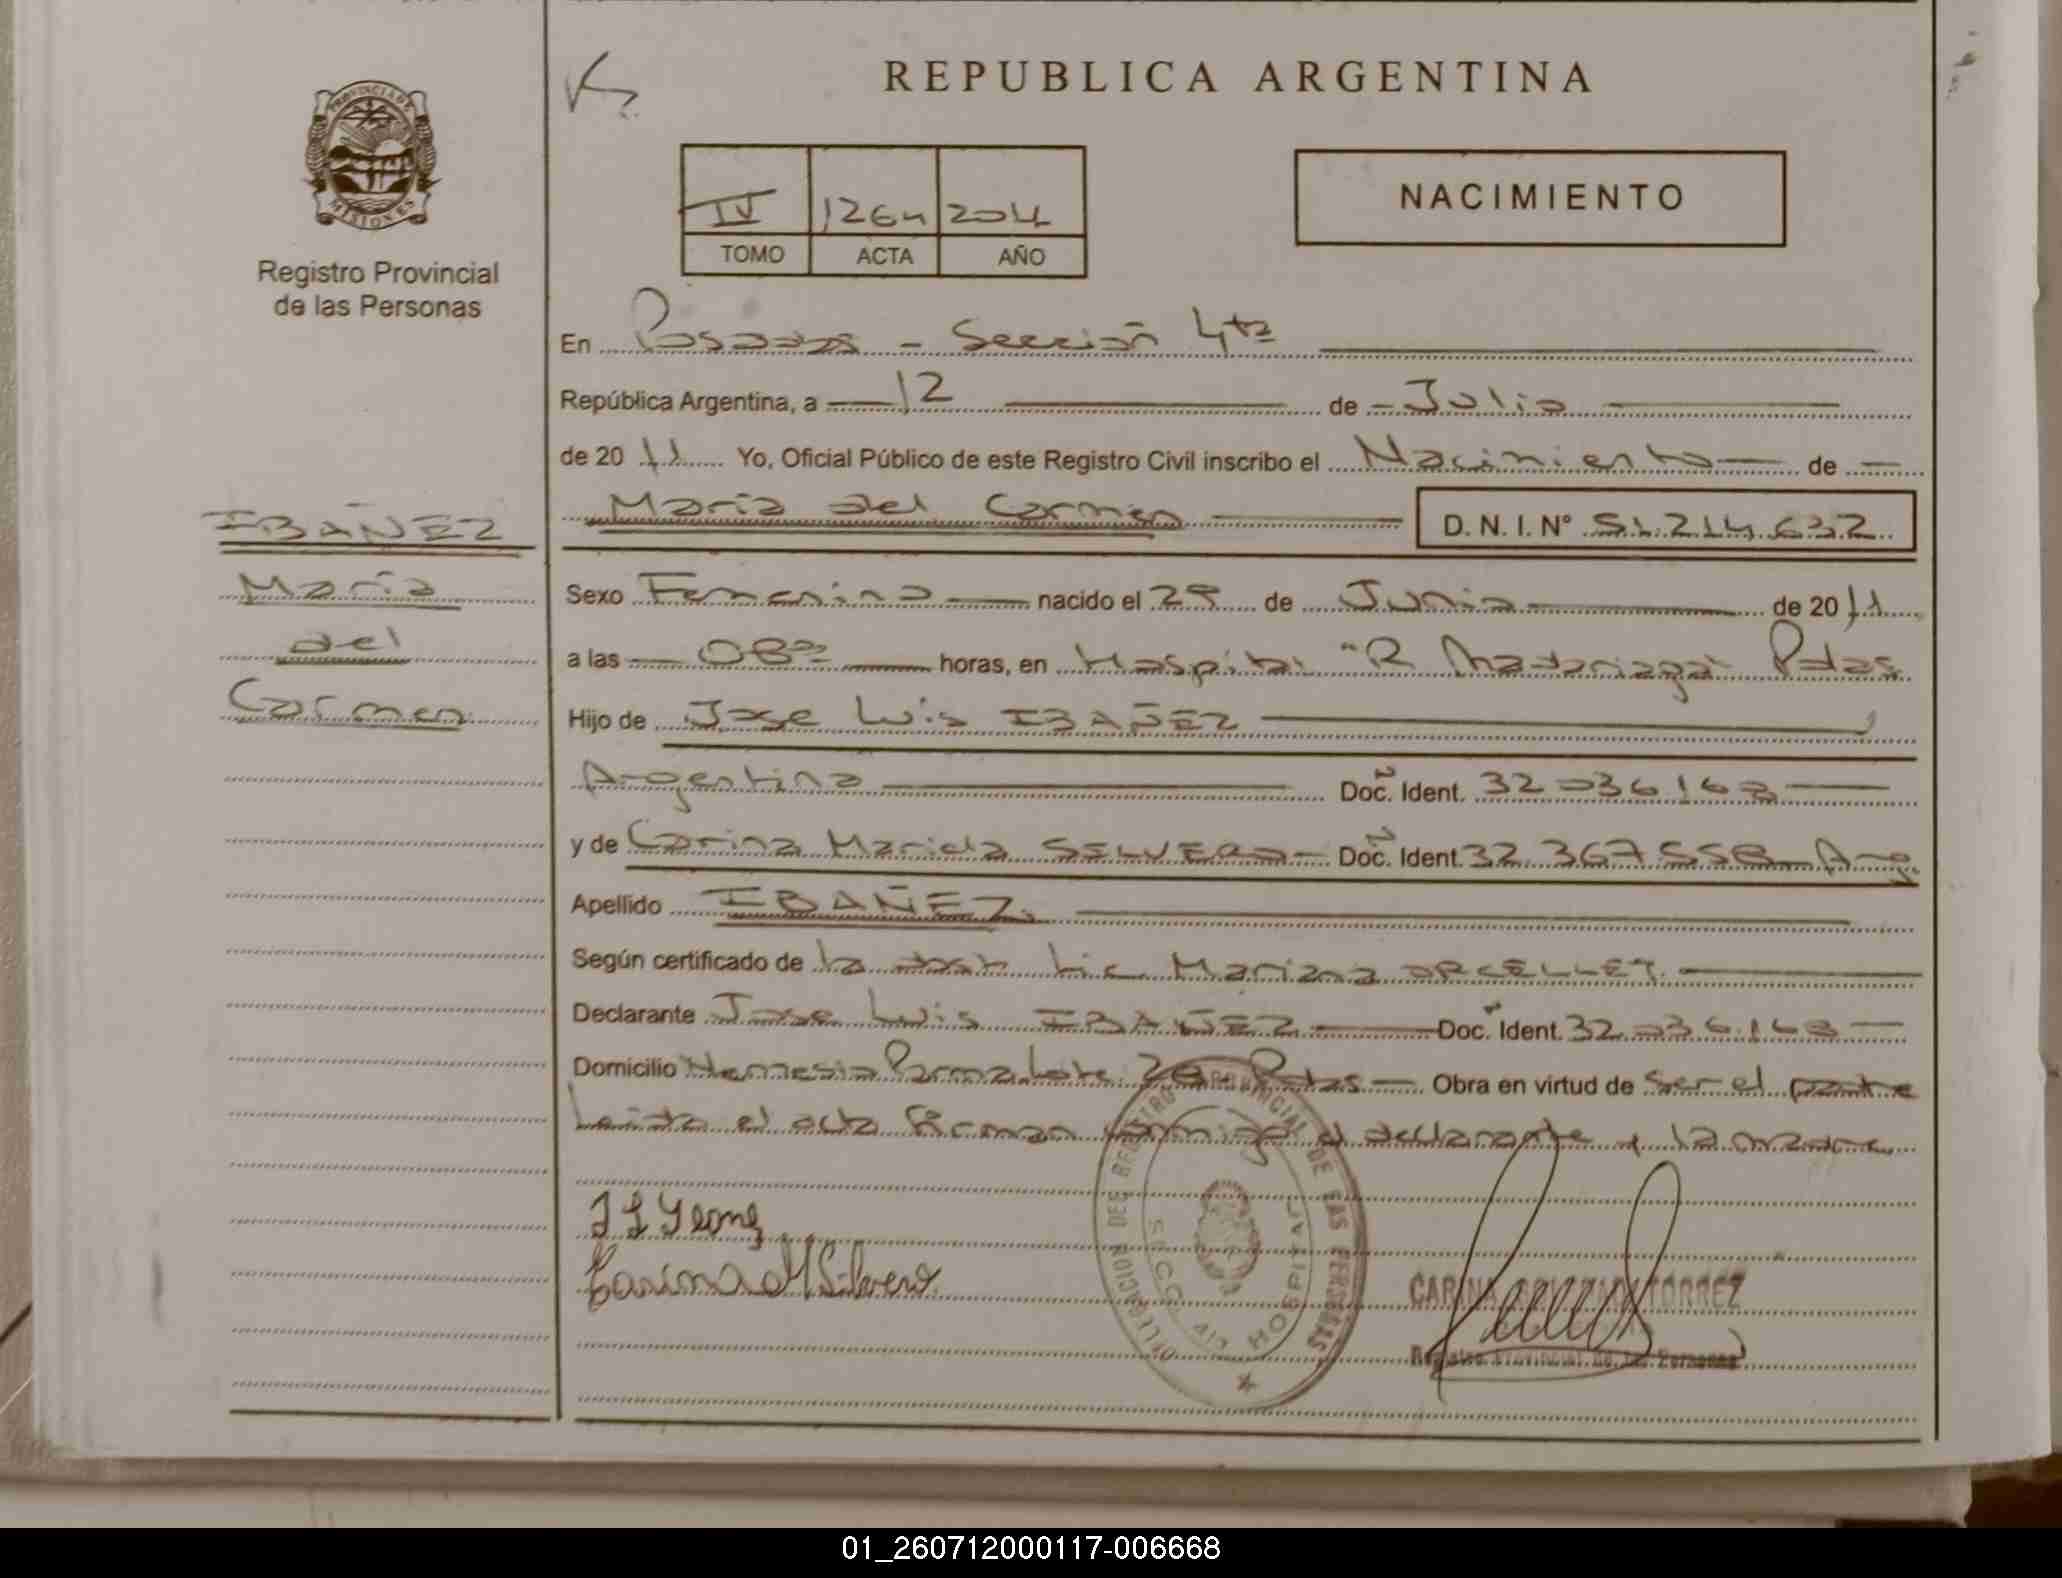 PROVINCIA DE
MISIONES
Registro Provincial
de las Personas
REPUBLICA ARGENTINA
NACIMIENTO
IV 1264
TOMO ACTA AÑO
En Posadas - Sección 4ta
República Argentina, a 12 de Julio
de 20 11 Yo, Oficial Público de este Registro Civil inscribo el Nacimiento de
María del Carmen D. N. I. N° 51.214.632
IBAÑEZ
María
del
Carmen
Sexo Femenino nacido el 29 de Junio de 20 11
a las 08 horas, en Hospital "R Madariaga" Pdas
Hijo de Jose Luis IBAÑEZ
Argentino Doc. Ident. 32 036 163
y de Carina Doc. Ident. 32 367 558 Arg
Apellido IBAÑEZ
Según certificado de la Lic Mariana
Declarante Jose Luis IBAÑEZ Doc. Ident. 32 036 163
Domicilio Nemesio Parma Lote Pdas Obra en virtud de ser el padre
Leida el acta firman conmigo el declarante y la madre
DELEGACION DEL REGISTRO PROVINCIAL DE LAS PERSONAS
SECC. 4ta HOSPITAL
CARINA TORREZ
Registro Provincial De las Personas
01_260712000117-006668